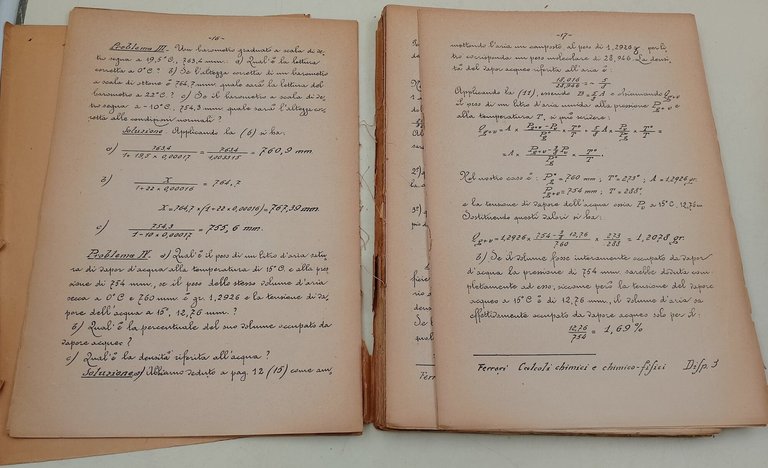 -16-
Problema III.- Un barometro graduato a scala di ve-
tro segna a 19,5°C, 763,4 mm: a) Qual'è la lettura
corretta a 0°C? b) Se l'altezza corretta di un barometro
a scala di ottone è 764,7 mm quale sarà la lettura del
barometro a 22°C? c) Se il barometro a scala di ve-
tro segna a -10°C. 754,3 mm quale sarà l'altezza cor-
retta alle condizioni normali?
Soluzione Applicando la (6) si ha:
a) 763,4 / 1+19,5 x 0,00017 = 763,4 / 1,003315 = 760,9 mm.
b) X / 1+22 x 0,00016 = 764,7
X = 764,7 x (1+22 x 0,00016) = 767,39 mm.
c) 754,3 / 1-10 x 0,00017 = 755,6 mm.
Problema IV. a) Qual'è il peso di un litro d'aria satu-
ra di vapor d'acqua alla temperatura di 15°C e alla pres-
sione di 754 mm, se il peso dello stesso volume d'aria
secca a 0°C e 760 mm è gr. 1,2926 e la tensione di va-
pore dell'acqua a 15°, 12,76 mm.?
b) Qual'è la percentuale del suo volume occupato da
vapore acqueo?
c) Qual'è la densità riferita all'acqua?
Soluzione a) Abbiamo veduto a pag. 12 (15) come am,
-17-
mettendo l'aria un composto il peso di 1,2926 g per li,
tro corrisponda un peso molecolare di 28,946. La densi,
tà del vapor acqueo riferita all'aria è:
18,016 / 28,946 = 5 / 8
Applicando la (11), essendo e chiamando
il peso di un litro d'aria umida alla pressione e
alla temperatura T, si può scrivere:
Nel nostro caso è: P° = 760 mm; T° = 273°; A = 1,2926 gr.
P g+v = 754 mm; T = 288°
e la tensione di vapore dell'acqua ossia Pv a 15°C, 12,76 m
Sostituendo questi valori si ha:
Q g+v = 1,2926 x 754 - 3/8 12,76 / 760 x 273 / 288 = 1,2078 gr.
b) Se il volume fosse interamente occupato da vapor
d'acqua la pressione di 754 mm sarebbe dovuta com-
pletamente ad esso, siccome però la tensione del vapore
acqueo a 15°C è di 12,76 mm, il volume d'aria sa
effettivamente occupato da vapore acqueo solo per il:
12,76 / 754 = 1,69%
Ferrari Calcoli chimici e chimico-fisici Disp. 3